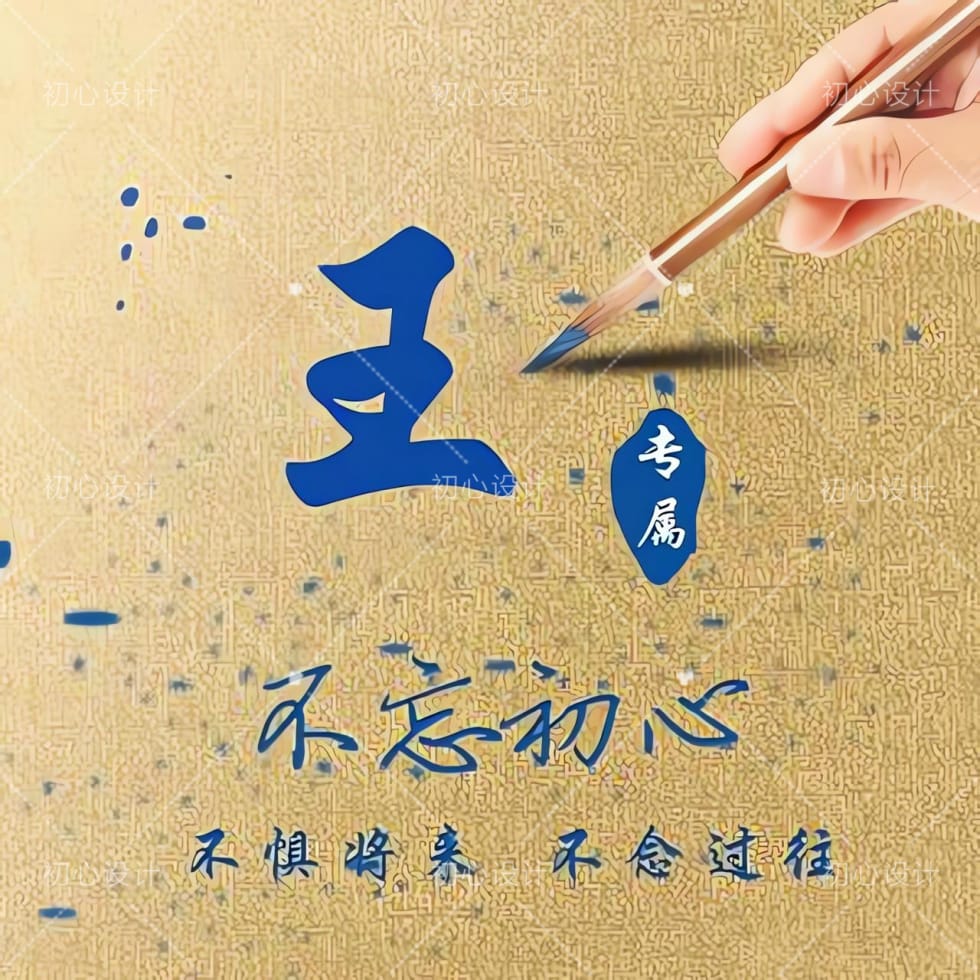 初心设计 初心设计 初心设计
王
专
属
初心设计 初心设计 初心设计
不忘初心
不惧将来 不念过往
初心设计 初心设计 初心设计